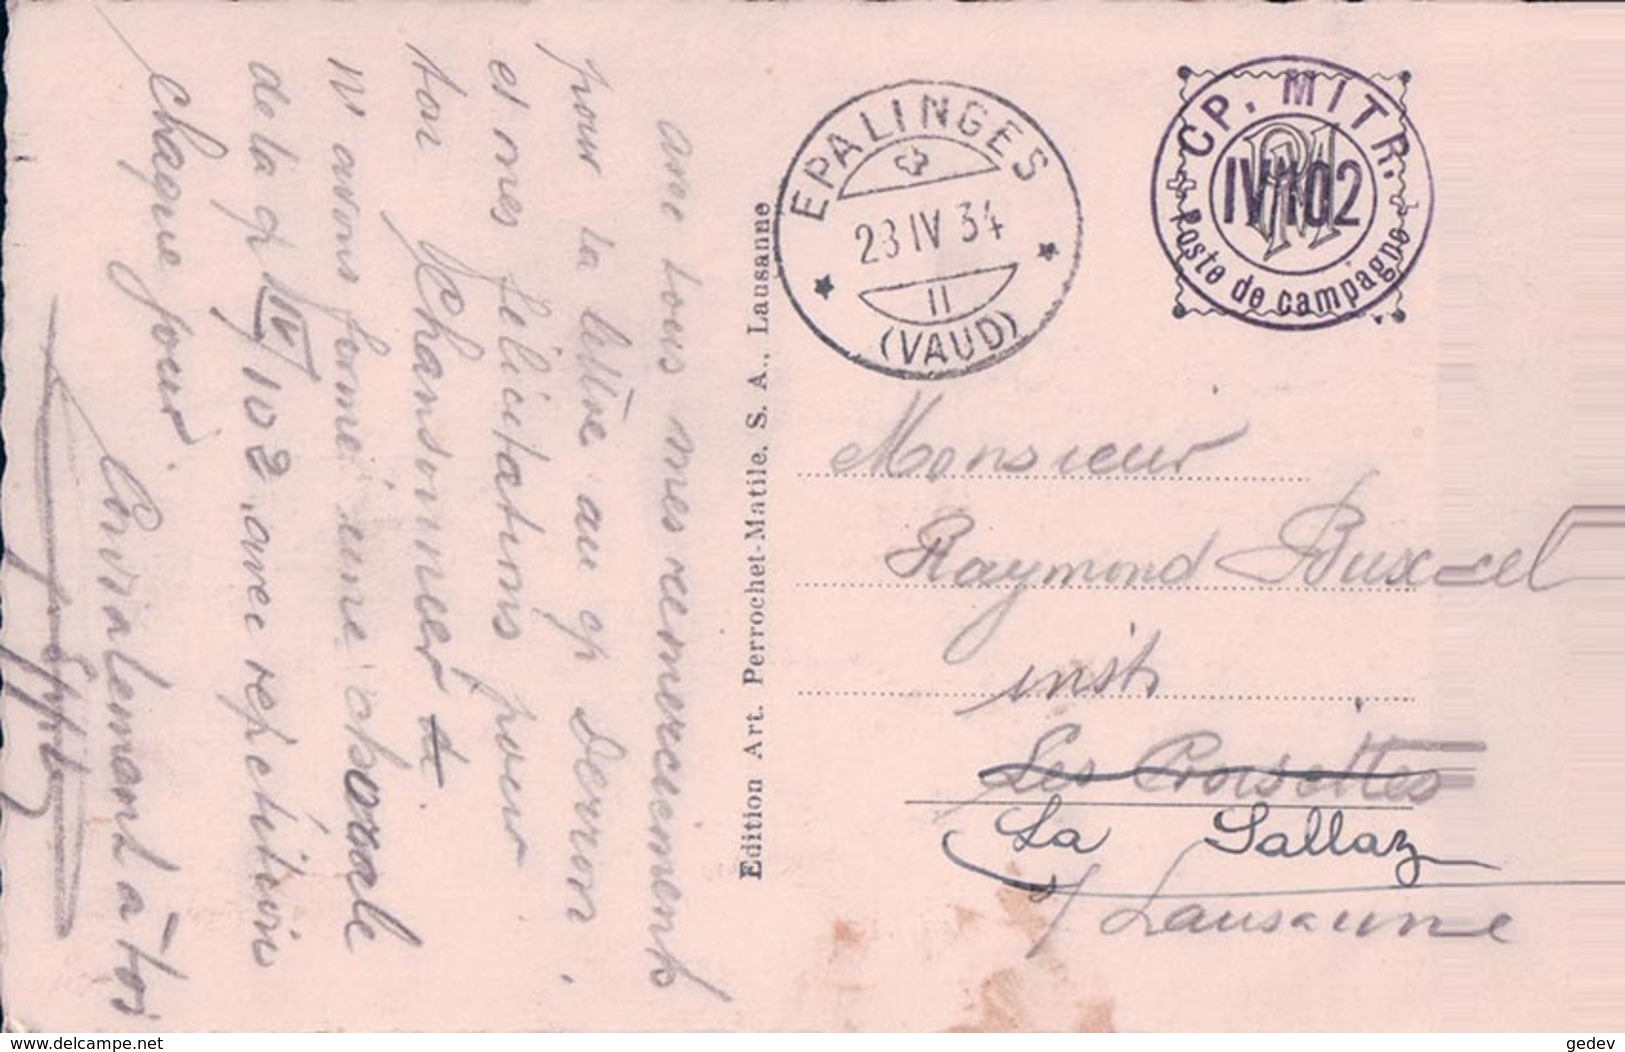 avec tous mes remerciements
pour la lettre au cp Derron.
et mes félicitations pour
ton Chansonnier
N s avons formé une chorale
de la cp IV/102, avec repétition
chaque jour.
Cordialement à toi
Edition Art. Perrochet-Matile. S. A., Lausanne
EPALINGES
23 IV 34
11
(VAUD)
CP. MITR.
IV 102
Poste de campagne
Monsieur
Raymond Buxcel
inst.
Les Croisettes
La Sallaz
s/ Lausanne
www.delcampe.net
gedev